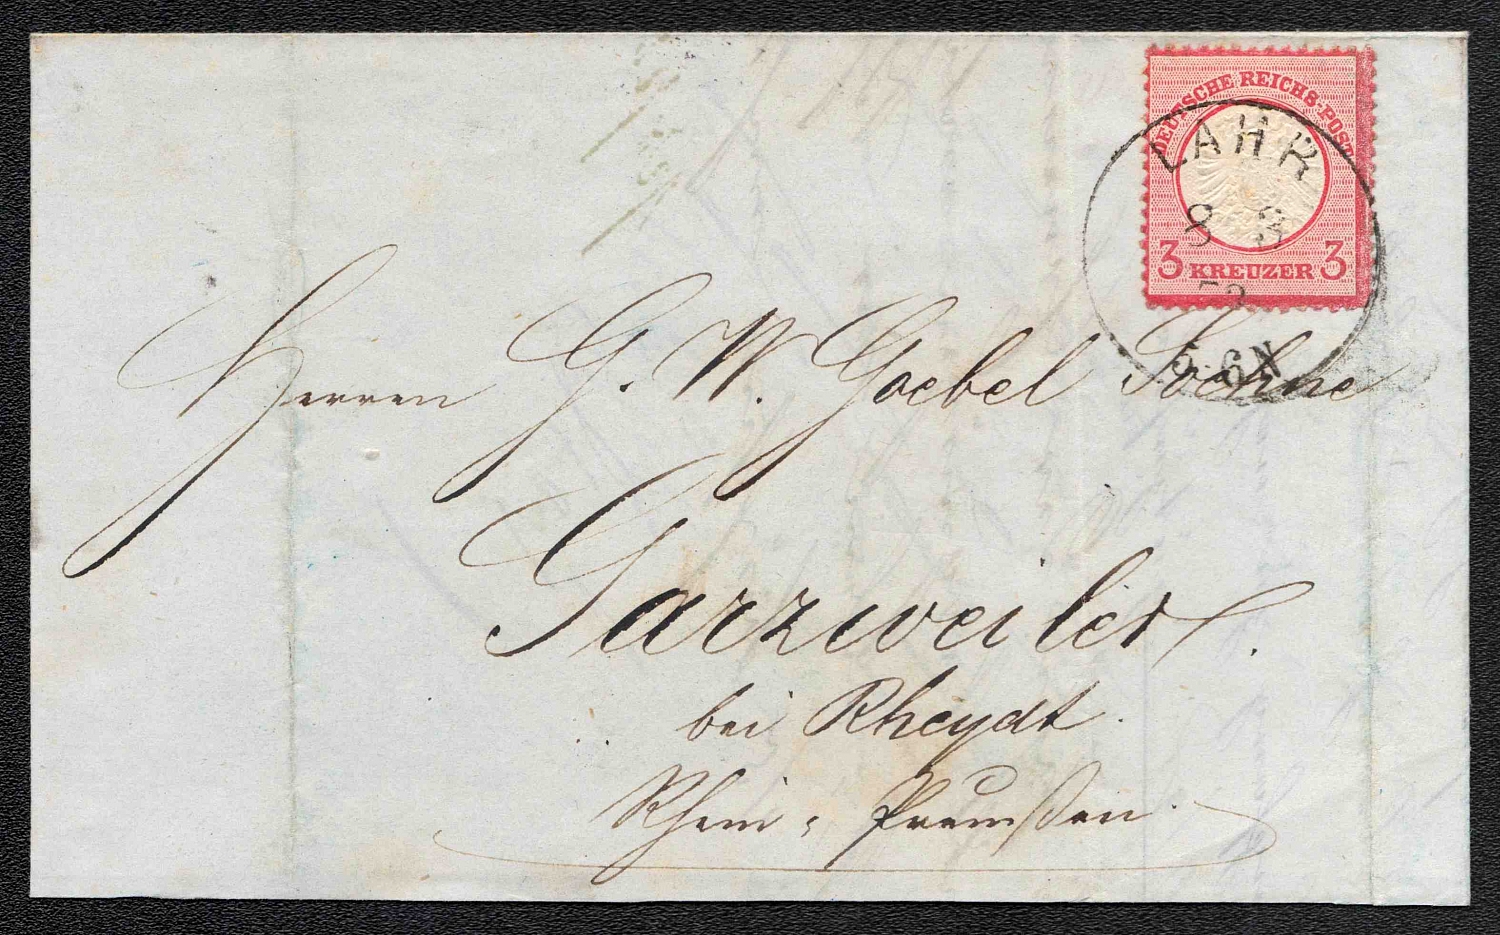 DEUTSCHE REICHS-POST
3 KREUZER 3
LAHR
8 8
72
5-6N
Herren G. W. Goebel Soehne
Garzweiler.
bei Rheydt.
Rhein-Preußen.